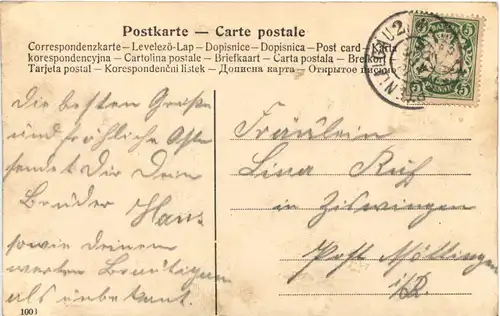 Postkarte — Carte postale
Correspondenzkarte – Levelező-Lap – Dopisnice – Dopisnica – Post card – Karta
korespondencyjna – Cartolina postale – Briefkaart – Carta postala – Brefkort
Tarjeta postal – Korespondenční listek – Дописна карта – Открытое письмо
Die besten Grüße
und fröhliche Ostern
sendet Dir Dein
Bruder Hans
sowie deinem
werten Bräutigam
als unbekant.
Fräulein
Lina Ruf
in Ziswingen
Post Möttingen
i/R.
1003
5
5